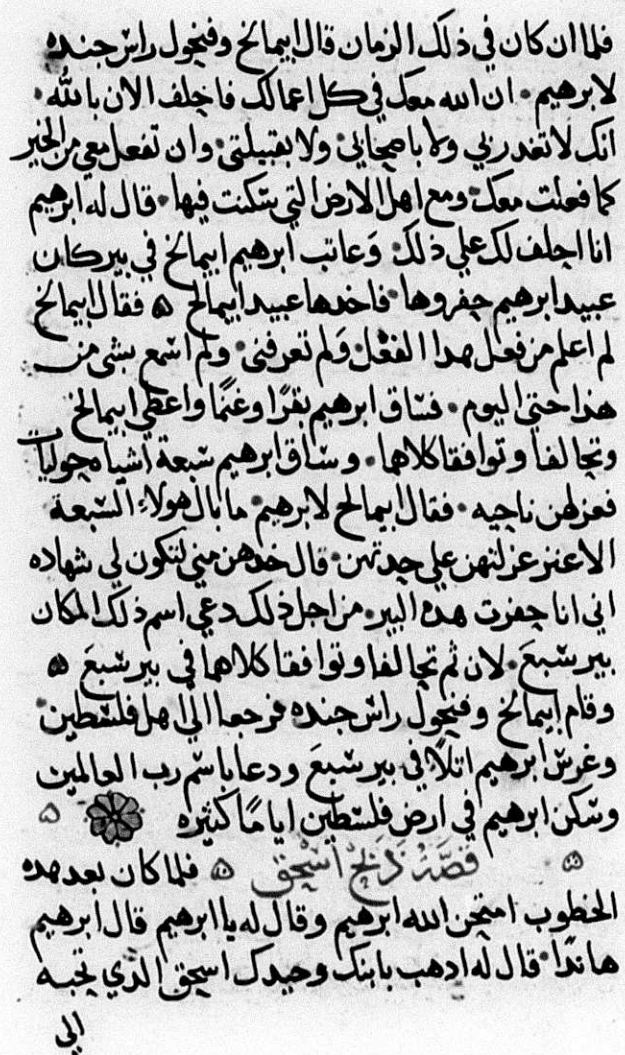 فلما ان كان في ذلك الزمان قال ابيمالخ وفيخول راس جنده
لابرهيم • ان الله معك في كل اعمالك فاحلف الان بالله •
انك لا تغدر بي ولا باصحابي • ولا بقبيلتي • وان تفعل معي من الخير
كما فعلت معك • ومع اهل الارض التي سكنت فيها • قال له ابرهيم
انا احلف لك علي ذلك • وعاتب ابرهيم ابيمالخ في بير كان
عبيد ابرهيم حفروها • فاخدها عبيد ابيمالخ ۞ فقال ابيمالخ
لم اعلم من فعل هدا الفعل ولم تعرفني • ولم اسمع بشي من
هذا حتي اليوم • فساق ابرهيم بقرًا وغنمًا واعطي ابيمالخ
وتحالفا وتوافقا كلاها • وساق ابرهيم سبعة اشياه حوليات
فعزلهن ناحيه • فقال ابيمالخ لابرهيم • ما بال هولاء السبعة
الاعنز عزلتهن علي حدتهن • قال خدهن مني لتكون لي شهاده
اني انا حفرت هده البير • من اجل ذلك دعي اسم ذلك المكان
بير سبعَ • لان ثم تحالفا وتوافقا كلاهما في بير سبعَ ۞
وقام ابيمالخ وفيخول راس جنده فرجعا الي اهل فلسطين •
وغرس ابرهيم اتلًا في بير سبعَ ودعا باسم رب العالمين
وسكن ابرهيم في ارض فلسطين ايامًا كثيره ۞
۞ • قصَّة ذَبْح اسْحق ۞ فلما كان بعد هده
الخطوب امتحن الله ابرهيم وقال له يا ابرهيم قال ابرهيم
هاندا • قال له ادهب بابنك وحيدك اسحق الدي تحبه
الي